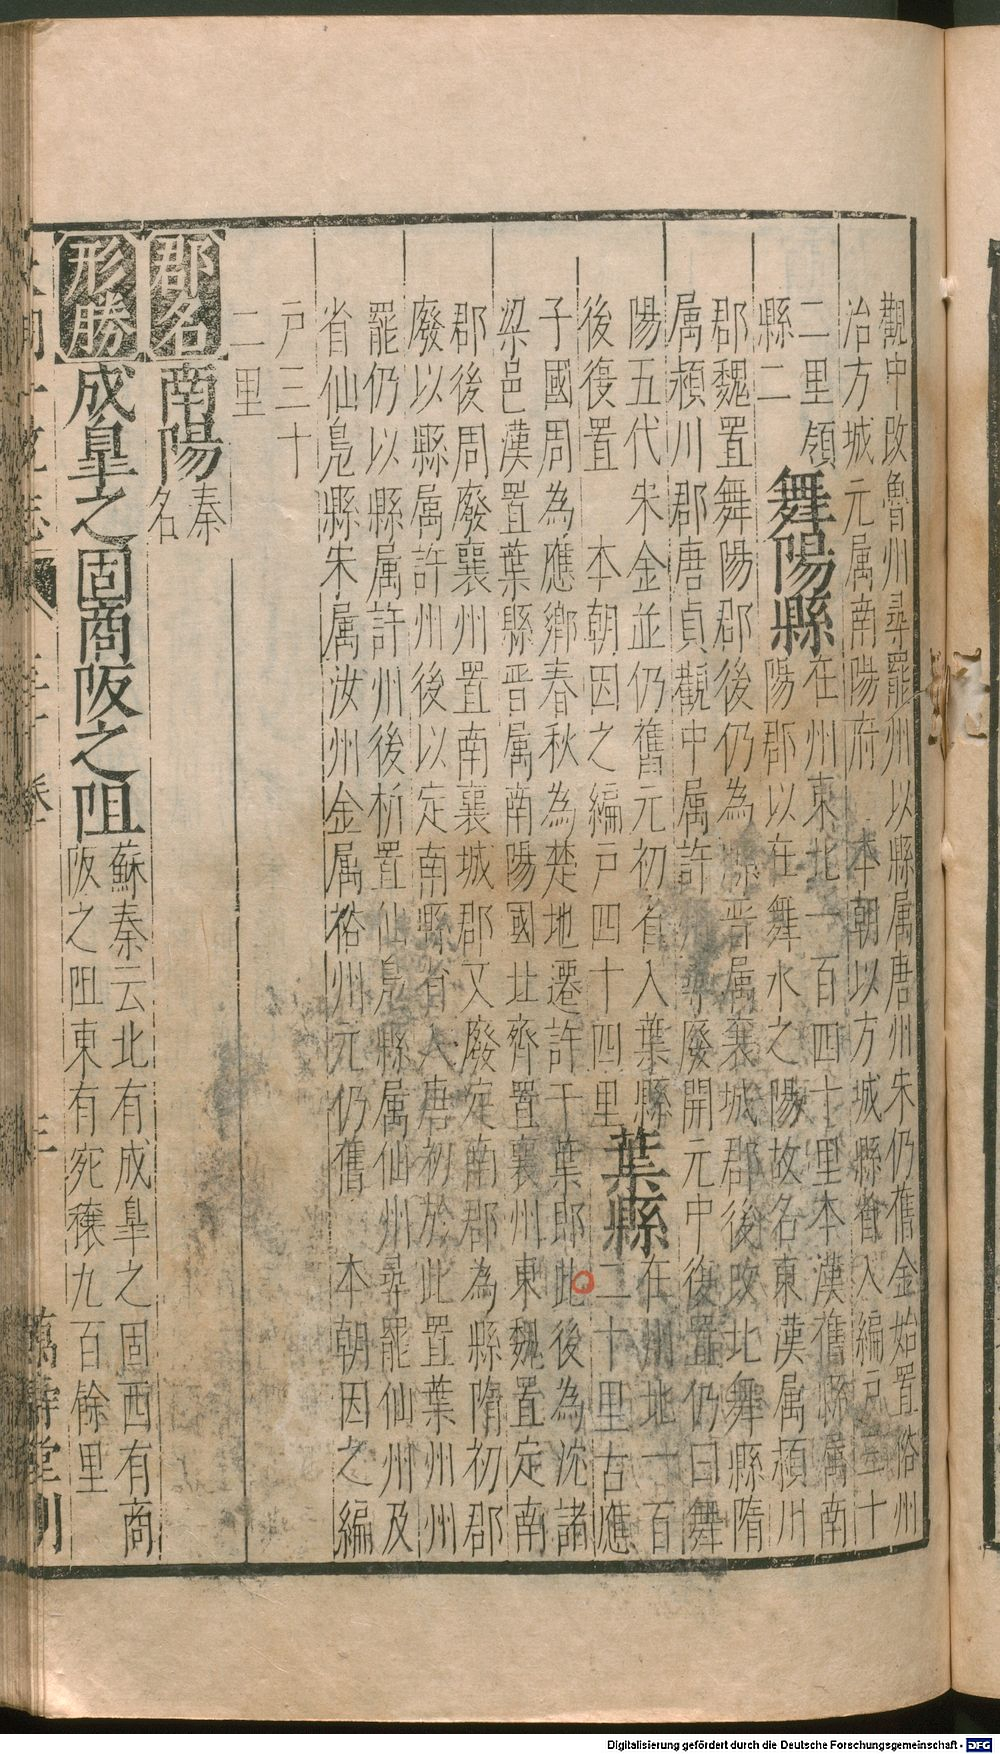 觀中改魯州尋罷州以縣属唐州宋仍舊金始置裕州
治方城元属南陽府　本朝以方城縣省入編戶三十
二里領
縣二
舞陽縣
在州東北一百四十里本漢舊縣属南
陽郡以在舞水之陽故名東漢属頴川
郡魏置舞陽郡後仍為縣晋属襄城郡後改北舞縣隋
属頴川郡唐貞觀中属許州尋廢開元中復置仍曰舞
陽五代宋金並仍舊元初省入葉縣
後復置　本朝因之編戶四十四里
葉縣
在州地一百
二十里古應
子國周為應鄉春秋為楚地遷許于葉郎此後為沈諸
梁邑漢置葉縣晋属南陽國北齊置襄州東魏置定南
郡後周廢襄州置南襄城郡又廢定南郡為縣隋初郡
廢以縣属許州後以定南縣省入唐初於此置葉州州
罷仍以縣属許州後析置仙鳧縣属仙州尋罷仙州及
省仙鳧縣宋属汝州金属裕州元仍舊　本朝因之編
戶三十
二里
郡名
南陽
秦
名
形勝
成臯之固商阪之阻
蘇秦云北有成臯之固西有商
阪之阻東有宛穰九百餘里
萬壽堂刊
Digitalisierung gefördert durch die Deutsche Forschungsgemeinschaft - DFG